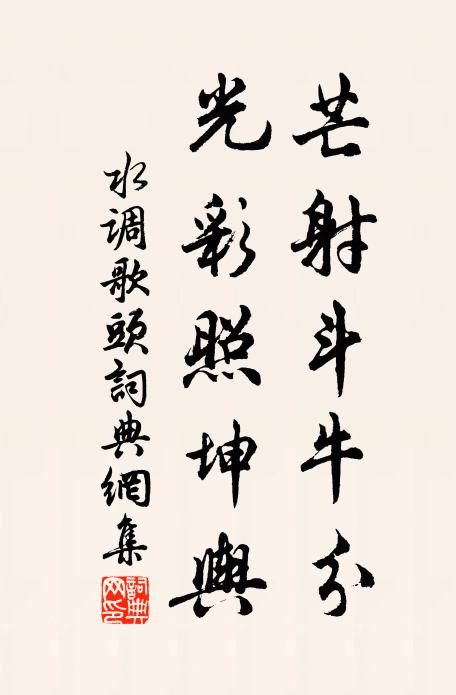 芒射斗牛分
光彩照坤輿
水调歌頭詞典網集
詞典網印